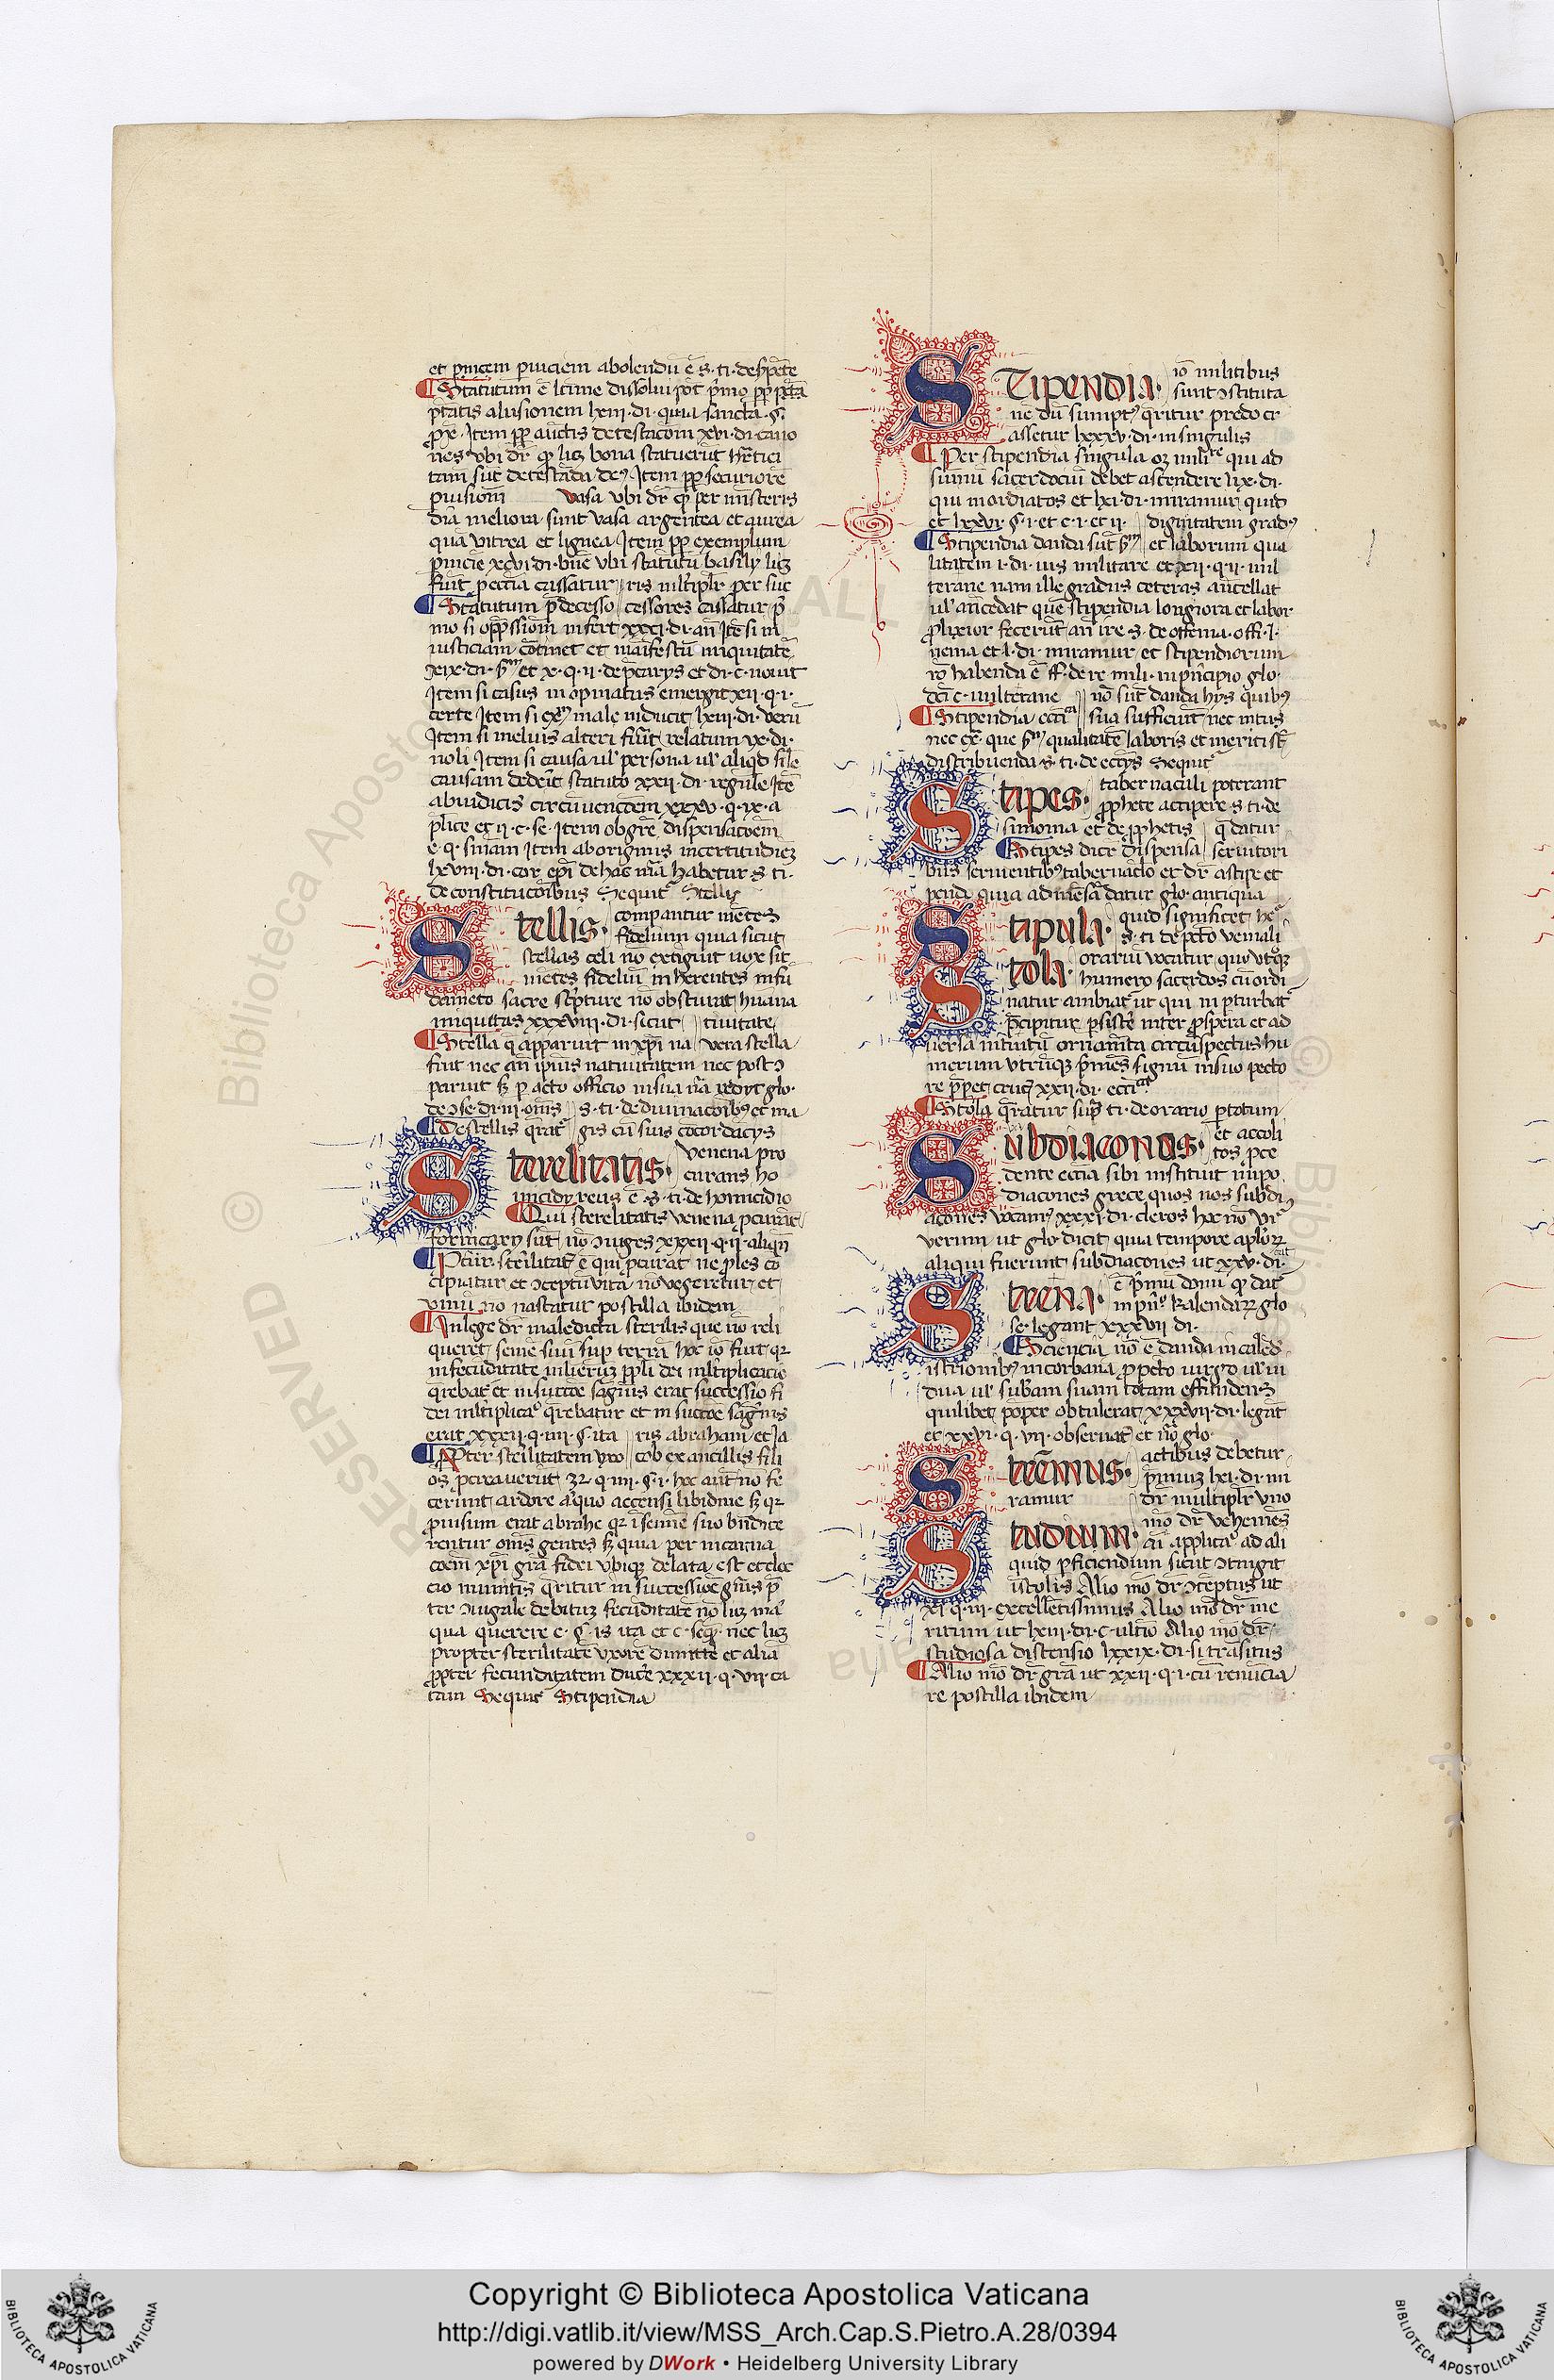 et pͥncem pniciem abolendū ē s. ti. de spēte
Statutum ē ltime dissolui pōt pͥmo ꝓp ptā
ptatis alusionem lxiii. di. quia sancta. §.
nēs vbi dr̄ ꝙ licꝫ bona statuerūt hrtici
tam sūt detestāda deꝰ Item ꝓp securiorē
puisiom vasa vbi dr̄ ꝙ per misteris
dia meliora sunt vasa argentea et aurea
quā vitrea et lignea Item ꝓp exemplum
Statutum p̄decesso cessores cassatur pͥ
mo si opp̄ssiom infert xxxi. di. añ Itē si in
iusticiam cōtinet et maīfestū iniquitatē
Item si casus inopinatus emergit xii. q. i.
certe Item si male inducit lxiii. di. verū
Item si meluis alteri fuit relatum ix. di.
noli Item si causa ul persona ul aliqͥd silē
causam dederit statuto xxii. di. regule Itē
ab iudicis circūuencōem xxxv. q. ix. a
plice et ii. c. se. Item ob grē dispensacoēm
e. q. sniam Item ab originis incertitudieꝫ
lxviii. di. cor epī de hac mā habetur s. ti.
de constitucōibus Sequit Stellis
Stellis. compantur mētes
fidelium quia sicut
stellas celi nō extīguit nox sic
mētes fideliū inherentes infu
damēto sacre scpture nō obscurat huāna
iniquitas xxxviii. di. sicut tiuitate
Stella q̄ apparuit in xpī na vera stella
fuit nec añ ipius natiuitatem nec post ↄ
paruit sꝫ pacto officio in sua nā redyt glo.
de ↄse. di. iii. omīs s. ti. de diuinacōibꝰ et ma
De stellis qrat gis cū suis cōcordācys
Sterelitatis. venena pro
curans ho
imcidy reus ē s. ti. de homicidio
Qui sterelitatis venena pcurāt
fornicary sūt nō ↄiuges xxxii. q. ii. aliqn̄
Pcur sterilitatē ē qui pcurat ne ples cō
cipiatur et ↄceptū vita nō vegeretur et
viuū nō nascatur postilla ibidem
In lege dr̄ maledicta sterilis que nō reli
queret semē suū sup terrā hoc iō fuit qꝛ
infecūditate mlierūꝫ ppli dei mltiplicatio
qrebat et in succōe sāgnis erat successio fi
dei mltiplicaͦ qrebatur et in succōe sāgnis
erat xxxii. q. iiii. §. ita ris abraham et ia
Pter sterilitatem vxo cob ex ancillis fili
os pcreauerūt 32. q. iiii. §. i. hoc aūt nō fe
cerunt ardore aͥquo accensi libidine sꝫ qꝛ
puisum erat abrahe qꝛ ī semīe suo bn̄dice
rentur om̄s gentes sꝫ quia per incarna
coēm xpī grā fidei vbiqꝫ delata est et elec
cio numinis qritur in successiōe gnis pͥ
ter ↄiugale debituꝫ fecūditatē nō licꝫ maͥ
qua querere e. §. is ita et c. seqͥ. nec licꝫ
propter sterilitatē vxorē dimittē et aliā
ppter fecunditatem ducē xxxii. q. vii. ta
tum Sequit Stipendia
STipendia. iō militibus
sunt ↄstituta
ne dū sumptꝰ qritur predo cr
assetur lxxxv. di. in singulis
Per stipendia singula oꝫ milite qui ad
sūmū sacerdociū debet ascendere lix. di.
qui in ordiatos et lxi. di. miramur quid
et lxxvi. §. i. et c. i. et ii. dignitatem gradꝰ
Stipendia danda sūt sm̄ et laborum qua
litatem i. di. ius militare et xii. q. ii. mil
terane nam ille gradus ceteras antecellat
ul ancedat quē stipendia longiora et labor
plixior fecerūt añ ire s. de offema. offi. l.
nema et l. di. miramur et stipendiorum
rō habenda ē ff. de re mili. in pͥncipio glo.
dcī c. militerane nō sūt danda hys quibꝰ
Stipendia ecctīa sua sufficiūt nec intus
nec ex que sm̄ qualitatē laboris et meriti st̄
distribuenda s. ti. de ecctys Sequit
Stipes. tabernaculi poterant
pphete accipere s. ti. de
simonia et de pphetis q̄ datur
Stipes dicit dispensa seruitori
bus seruientibꝰ tabernaclo et dr̄ a stipe et
penda quia ad mēsā datur glo. antiqua
Stipula. quid significet he
s. ti. te peto veniali
Stola. orariū vocatur quo vtqꝫ
humero sacerdos cū ordi
natur ambiat ut qui in pturbat
pcipitur psistē inter pspera et ad
uersa intuitū ornamēta circūspectus hu
merum vtrūqꝫ pmēs signū in suo pecto
re pp̄et crucꝫ xxii. di. ecctīa
Stola qratur supͣ ti. de orario ptotum
Subdiaconos. et accoli
tos pce
dente ecctīa sibi instituit mpo
diacones grece quos nos subdi
acones vocamꝰ xxxi. di. cleros hoc nō vr̄
verum ut glo. dicit quia tempore aplōꝝ
aliqui fuerunt subdiacones ut xxv. di.
Strena. ē pͥmū donū ꝙ dat
in pnͦ kalendaꝝ glo
se. legant xxxvii di.
Sciencia nō ē danda in caled
istrionibꝰ in corbana p peto uirgo ul ui
dua ul subām suam totam effundens
quilibet popr obtulerat xxxvii. di. legāt
et xxvi. q. vii. obseruat et nō glo.
Stremus. actibus debetur
pͥmiuꝫ lxi. di. mi
ramur dr̄ multiplr vno
Studium. mō dr̄ vehemēs
aī applicaͦ ad ali
quid pficiendum sicut ↄtīgit
ī scolis Alio mō dr̄ ↄceptus ut
xi. q. iii. excellētissimus Alio mō dr̄ me
ritum ut lxiii. di. c. ultīo Alio mō dr̄
studiosa discensio lxxix. di. si trāsitus
Alio mō dr̄ grā ut xxii. q. i. cū renūcia
re postilla ibidem
Copyright © Biblioteca Apostolica Vaticana
http://digi.vatlib.it/view/MSS_Arch.Cap.S.Pietro.A.28/0394
powered by DWork • Heidelberg University Library
BIBLIOTECA APOSTOLICA VATICANA
BIBLIOTECA APOSTOLICA VATICANA